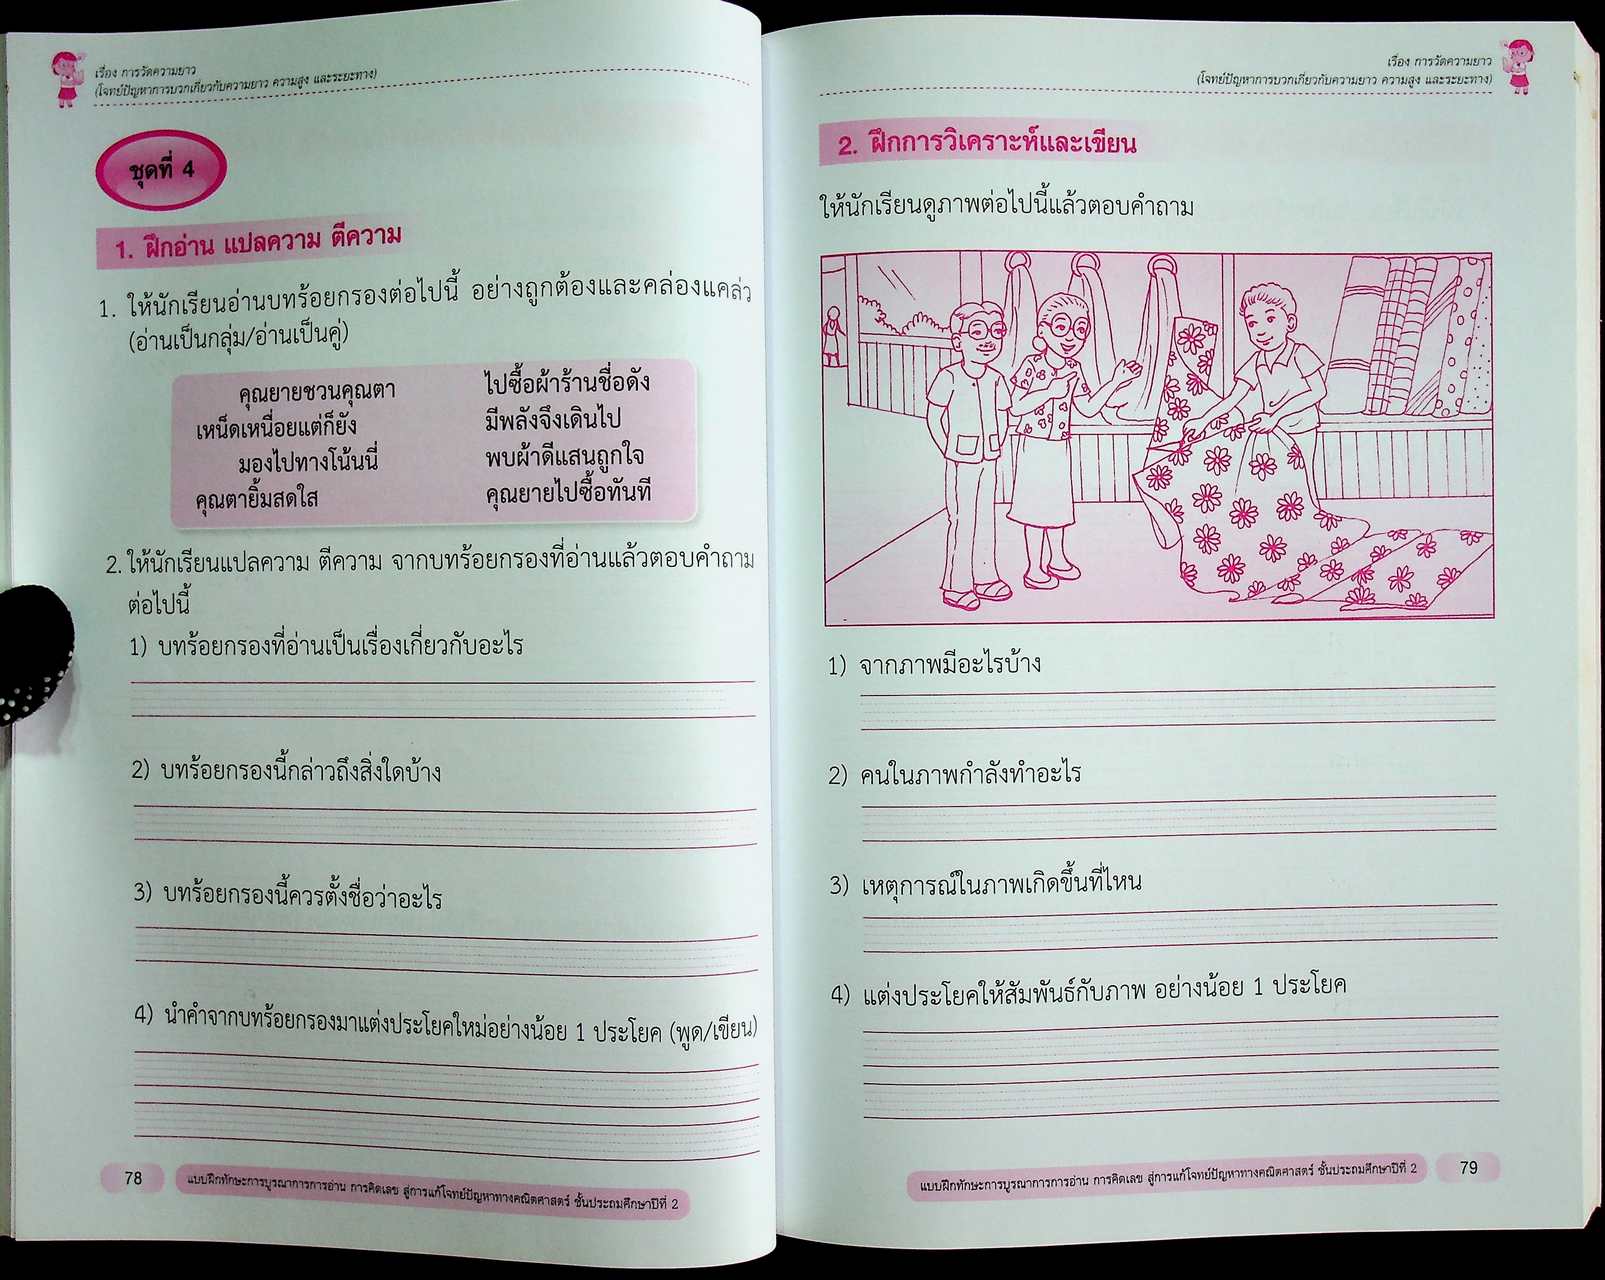 เรื่อง การวัดความยาว
(โจทย์ปัญหาการบวกเกี่ยวกับความยาว ความสูง และระยะทาง)
ชุดที่ 4
1. ฝึกอ่าน แปลความ ตีความ
1. ให้นักเรียนอ่านบทร้อยกรองต่อไปนี้ อย่างถูกต้องและคล่องแคล่ว
(อ่านเป็นกลุ่ม/อ่านเป็นคู่)
คุณยายชวนคุณตา ไปซื้อผ้าร้านชื่อดัง
เหน็ดเหนื่อยแต่ก็ยัง มีพลังจึงเดินไป
มองไปทางโน้นนี่ พบผ้าดีแสนถูกใจ
คุณตายิ้มสดใส คุณยายไปซื้อทันที
2. ให้นักเรียนแปลความ ตีความ จากบทร้อยกรองที่อ่านแล้วตอบคำถาม
ต่อไปนี้
1) บทร้อยกรองที่อ่านเป็นเรื่องเกี่ยวกับอะไร
2) บทร้อยกรองนี้กล่าวถึงสิ่งใดบ้าง
3) บทร้อยกรองนี้ควรตั้งชื่อว่าอะไร
4) นำคำจากบทร้อยกรองมาแต่งประโยคใหม่อย่างน้อย 1 ประโยค (พูด/เขียน)
78 แบบฝึกทักษะการบูรณาการการอ่าน การคิดเลข สู่การแก้โจทย์ปัญหาทางคณิตศาสตร์ ชั้นประถมศึกษาปีที่ 2
เรื่อง การวัดความยาว
(โจทย์ปัญหาการบวกเกี่ยวกับความยาว ความสูง และระยะทาง)
2. ฝึกการวิเคราะห์และเขียน
ให้นักเรียนดูภาพต่อไปนี้แล้วตอบคำถาม
1) จากภาพมีอะไรบ้าง
2) คนในภาพกำลังทำอะไร
3) เหตุการณ์ในภาพเกิดขึ้นที่ไหน
4) แต่งประโยคให้สัมพันธ์กับภาพ อย่างน้อย 1 ประโยค
แบบฝึกทักษะการบูรณาการการอ่าน การคิดเลข สู่การแก้โจทย์ปัญหาทางคณิตศาสตร์ ชั้นประถมศึกษาปีที่ 2 79